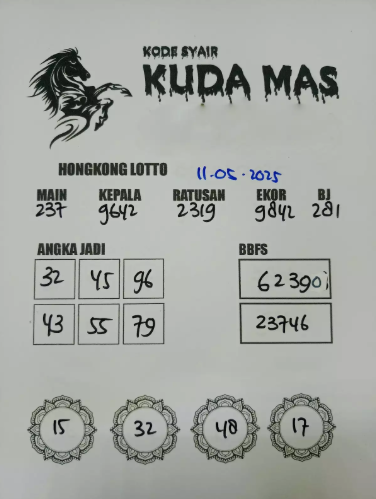 KODE SYAIR
KUDA MAS
HONGKONG LOTTO 11-05-2025
MAIN KEPALA RATUSAN EKOR BJ
237 9642 2319 9842 281
ANGKA JADI BBFS
32 45 96 62390
43 55 79 23746
15 32 48 17